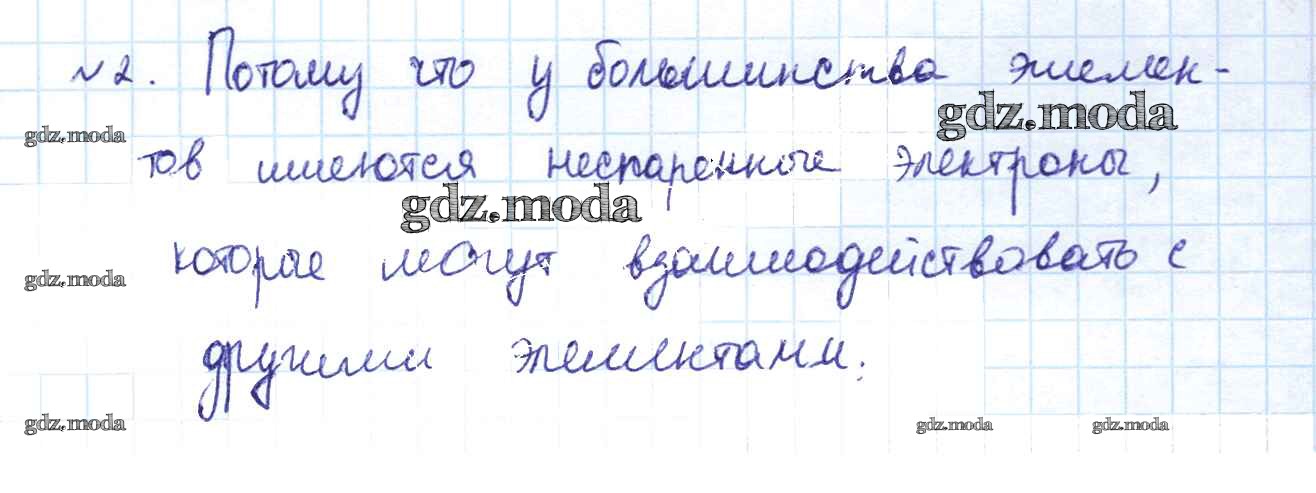 №2. Потому что у большинства элемен-
gdz.moda
gdz.moda
тов имеются неспаренные электроны,
gdz.moda
которые могут взаимодействовать с
gdz.moda
другими элементами.
gdz.moda
gdz.moda
gdz.moda